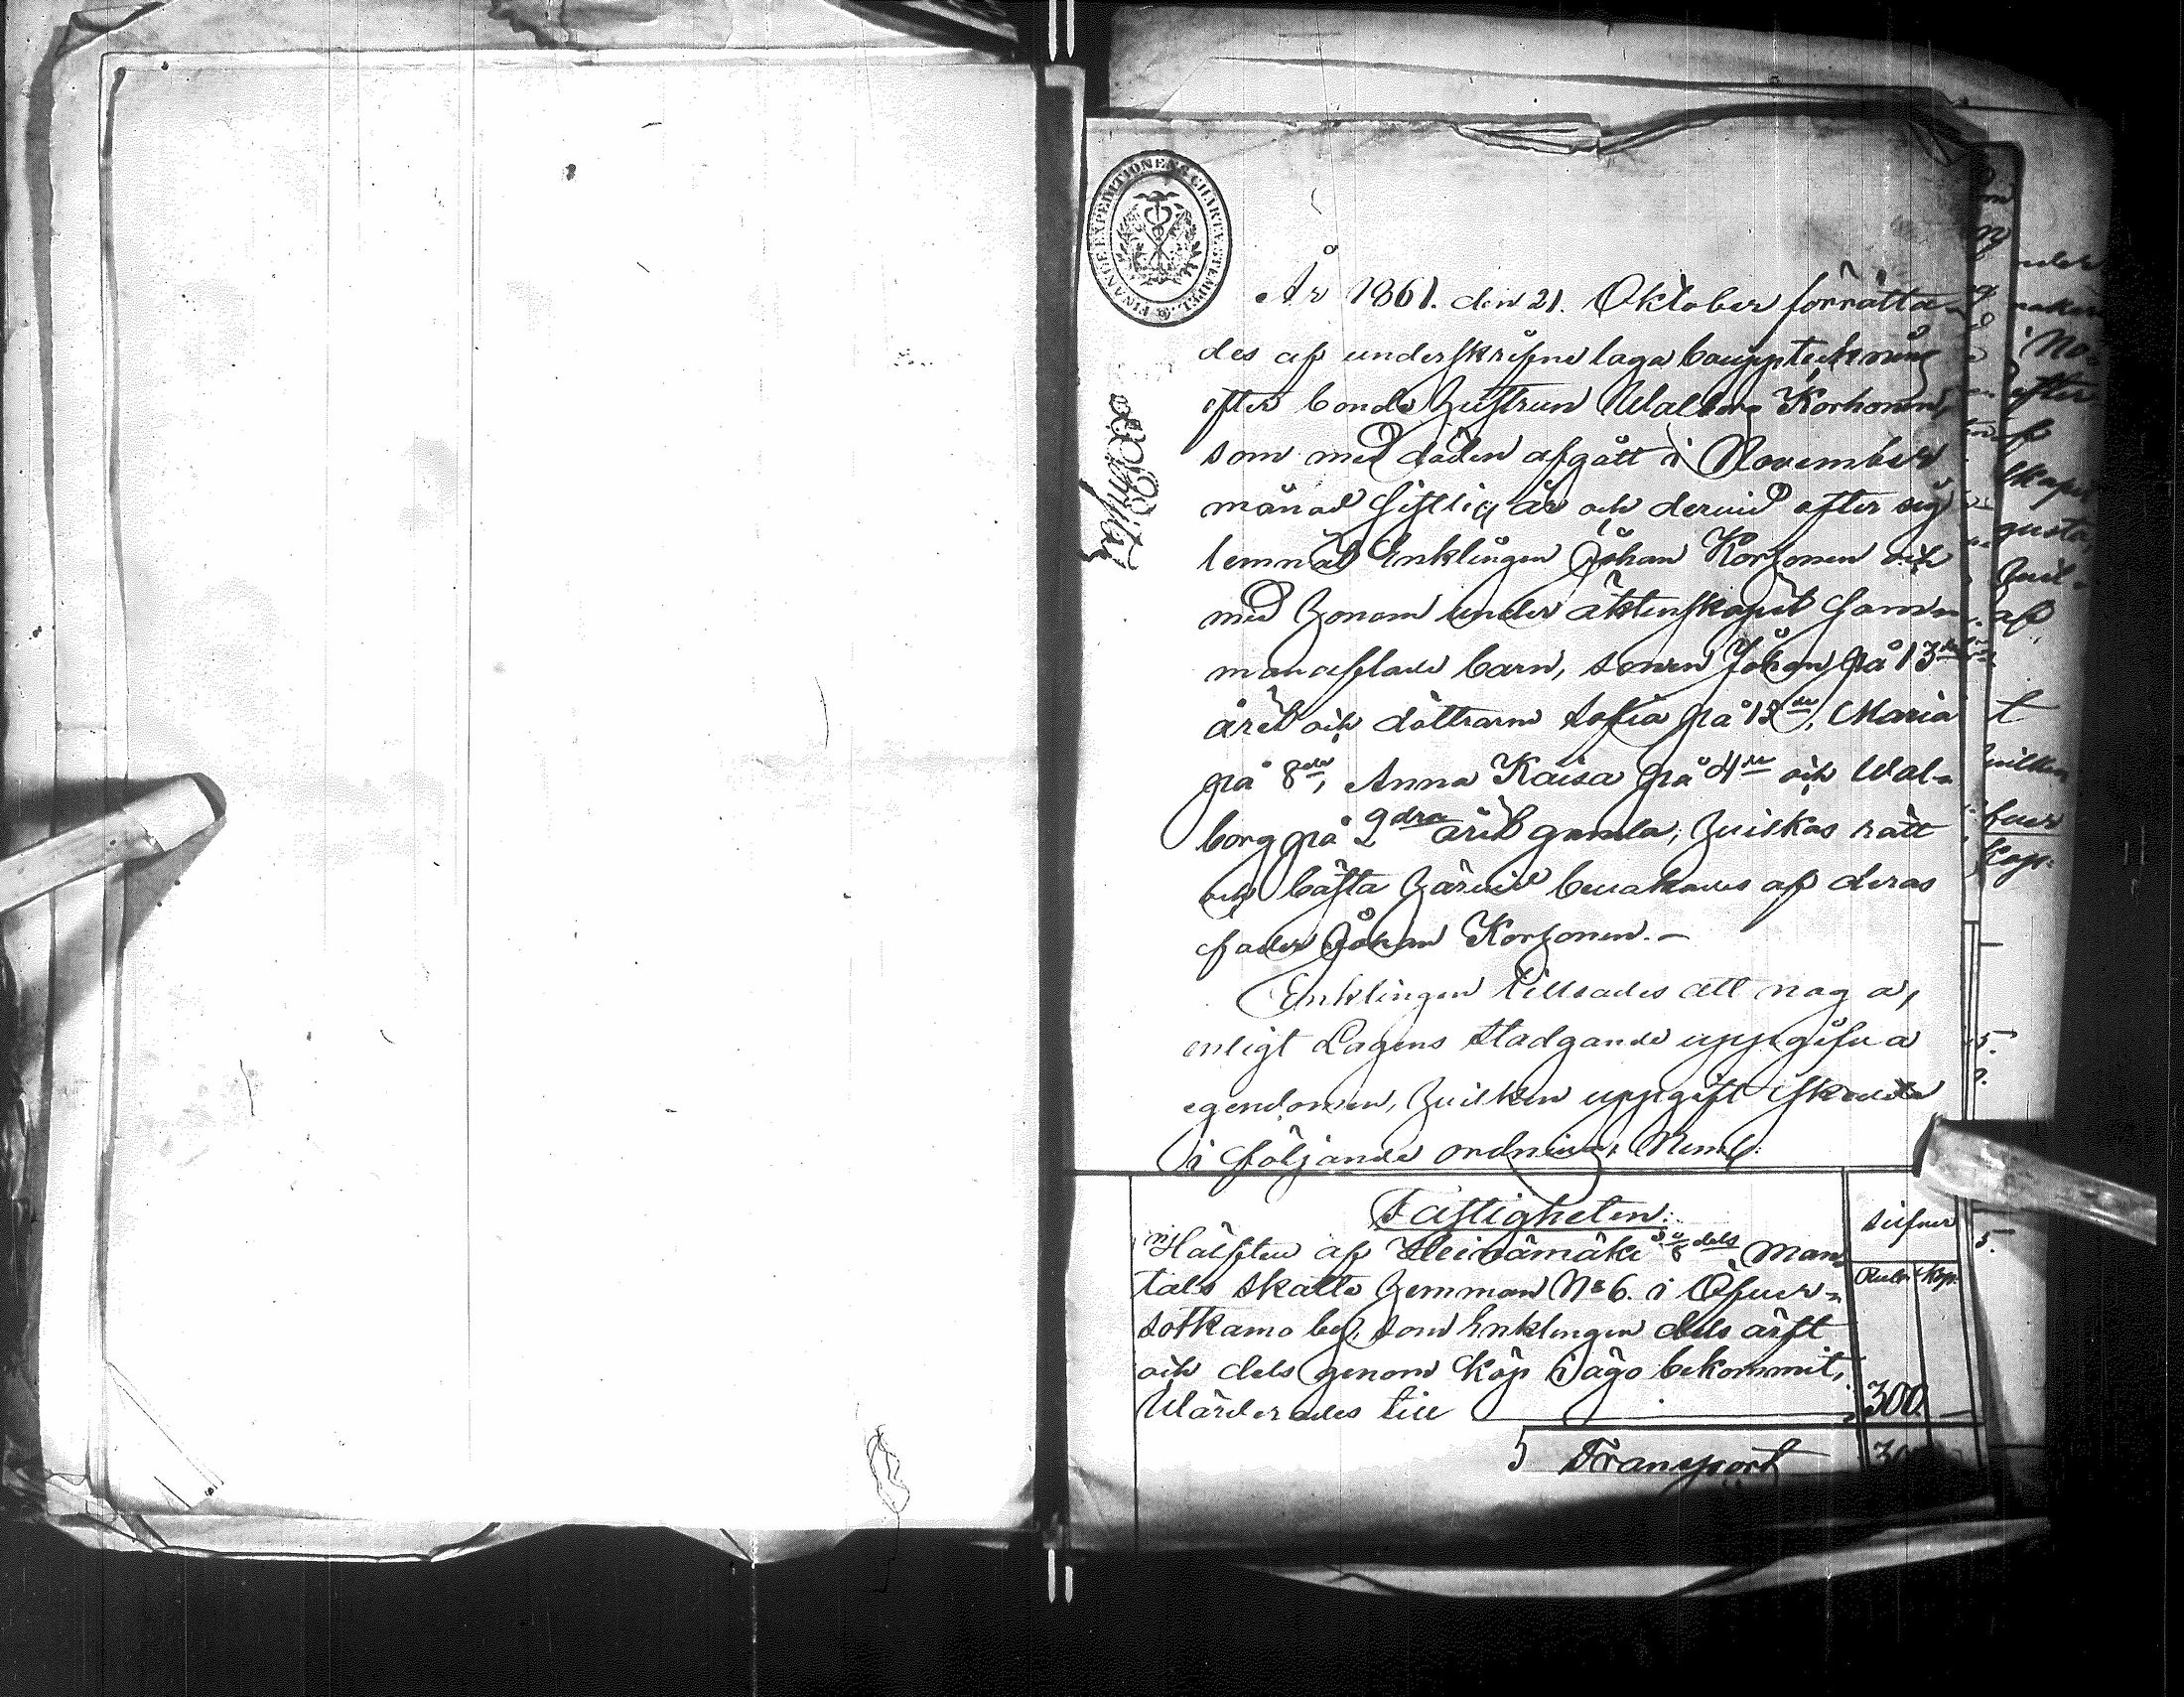 FINANCE EXPEDITIONENS CHARTÆ STEMPEL
År 1861. den 21. Oktober förrätta-
des af underskrifne laga bouppteckning
efter bonde hustrun Walborg Korhonen,
som med döden afgått i November
månad sistlig år och dervid efter sig
lemnat Enklingen Johan Korhonen och
med honom under äktenskapet samm-
manaflade barn, sonen Johan på 13de
året och döttrarne Sofia på 12de, Maria
på 8de, Anna Kaisa på 4de och Wal-
borg på 2dra året gamla, hvilkas rätt
och bästa härvid bevakades af deras
fader Johan Korhonen.-
Enklingen tillsades att noga,
enligt Lagens Stadgande uppgifva
egendomen, hvilken uppgift skedde
i följande ordning, Neml:
Fastigheten:
Hälften af Heinämäki dels Man-
tals skatte hemman No 6. i Öfver-
sotkamo by, som Enklingen dels ärft
och dels genom köp i ägo bekommit,
Wärderades till
Silfver
Rubl Kop.
300. —
Transport